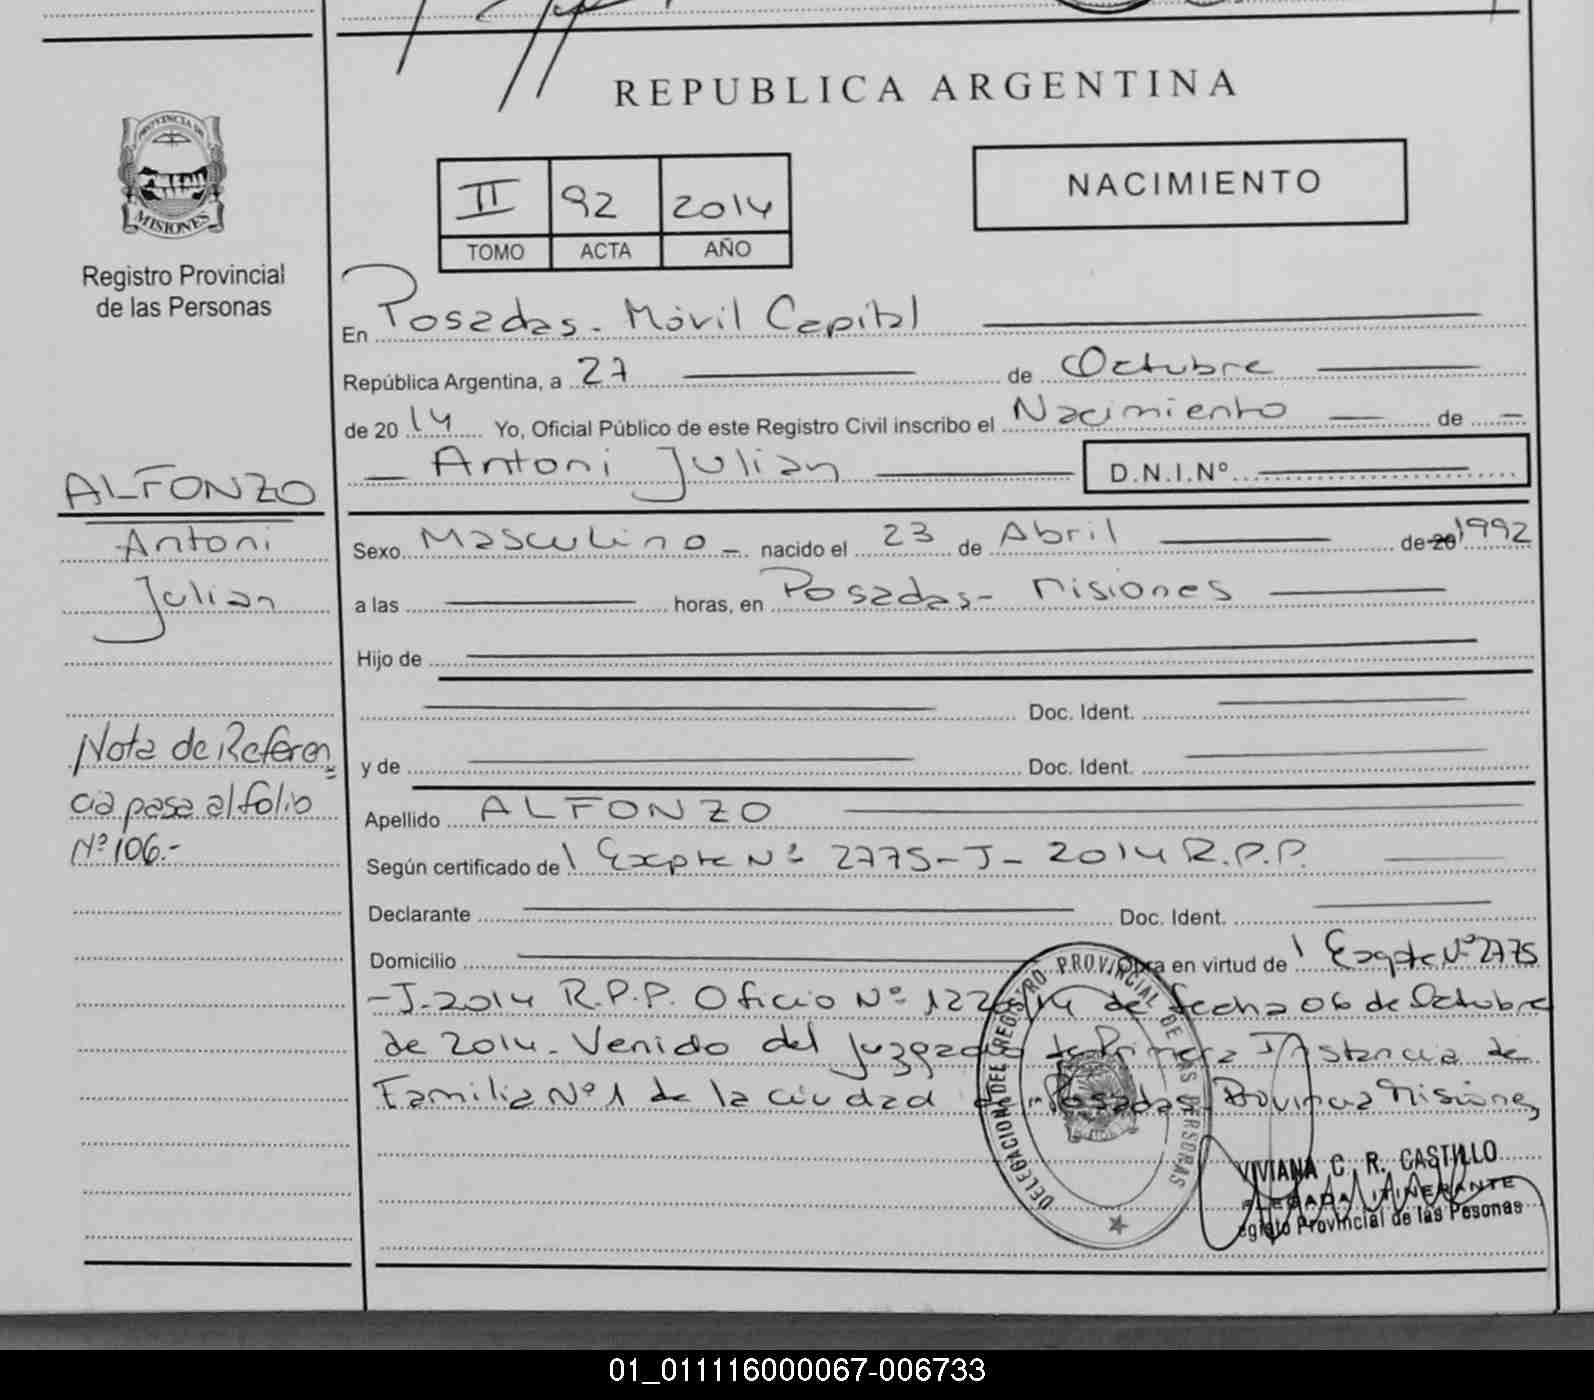 REPUBLICA ARGENTINA
PROVINCIA DE
MISIONES
Registro Provincial
de las Personas
II 92 2014
TOMO ACTA AÑO
NACIMIENTO
En Posadas - Móvil Capital
República Argentina, a 27 de Octubre
de 20 14 Yo, Oficial Público de este Registro Civil inscribo el Nacimiento de
Antoni Julian D.N.I.Nº
ALFONZO
Antoni
Julian
Sexo Masculino - nacido el 23 de Abril de 20 1992
a las horas, en Posadas - Misiones
Hijo de
Doc. Ident.
y de Doc. Ident.
Nota de Referen
cia pasa al folio
Nº 106.-
Apellido ALFONZO
Según certificado de Expte Nº 2775-J-2014 R.P.P.
Declarante Doc. Ident.
Domicilio Obra en virtud de Expte Nº 2775
-J-2014 R.P.P. Oficio Nº de fecha 06 de Octubre
de 2014 - Venido del Juzgado de Primera Instancia de
Familia Nº 1 de la ciudad de Posadas Provincia Misiones
DELEGACION DEL REGISTRO PROVINCIAL DE LAS PERSONAS
VIVIANA C. R. CASTILLO
DELEGADA ITINERANTE
egistro Provincial de las Pesonas
01_011116000067-006733